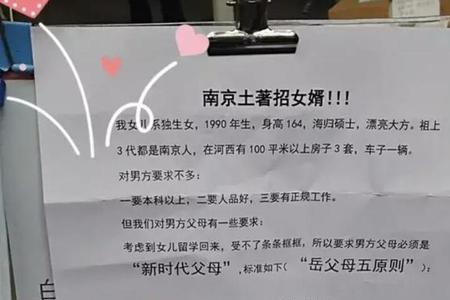 南京土著招女婿!!!
我女儿系独生女，1990年生，身高164，海归硕士，漂亮大方。祖上
3代都是南京人，在河西有100平米以上房子3套，车子一辆。
对男方要求不多：
一要本科以上，二要人品好，三要有正规工作。
但我们对男方父母有一些要求：
考虑到女儿留学回来，受不了条条框框，所以要求男方父母必须是
“新时代父母”,标准如下（“岳父母五原则”）：